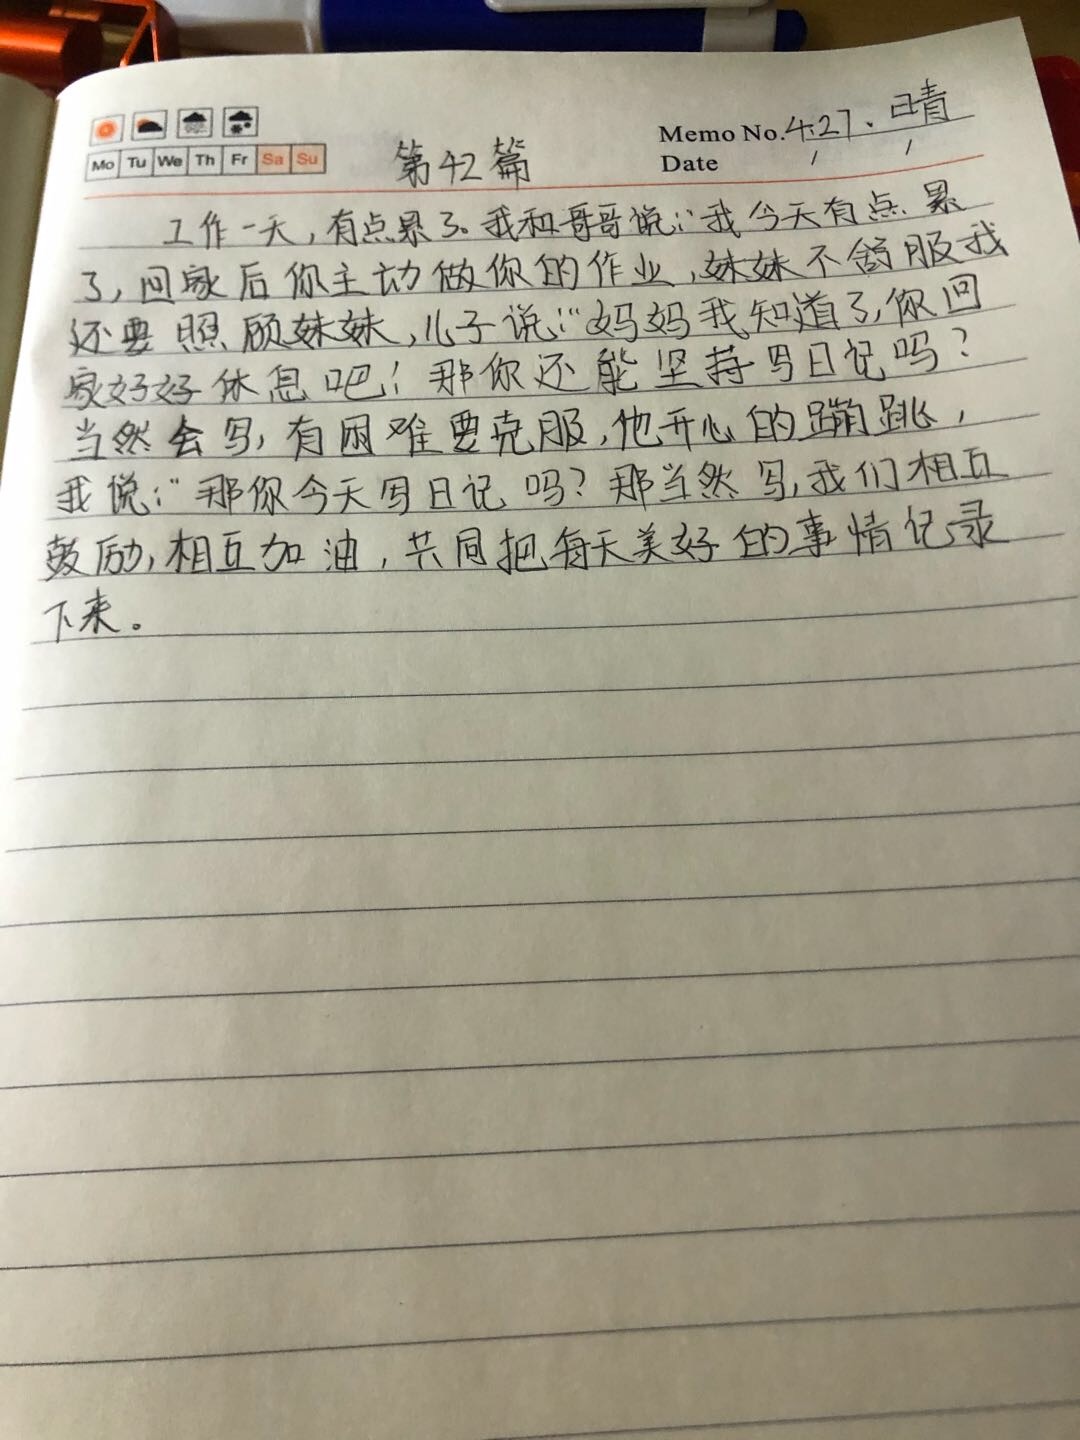 Mo Tu We Th Fr Sa Su
第42篇
Memo No. 4.27、晴
Date / /
工作一天,有点累了。我和哥哥说:“我今天有点累
了,回家后你主动做你的作业,妹妹不舒服我
还要照顾妹妹,儿子说:“妈妈我知道了,你回
家好好休息吧!那你还能坚持写日记吗?
当然会写,有困难要克服,他开心的蹦跳,
我说:“那你今天写日记吗?那当然写,我们相互
鼓励,相互加油,共同把每天美好的事情记录
下来。